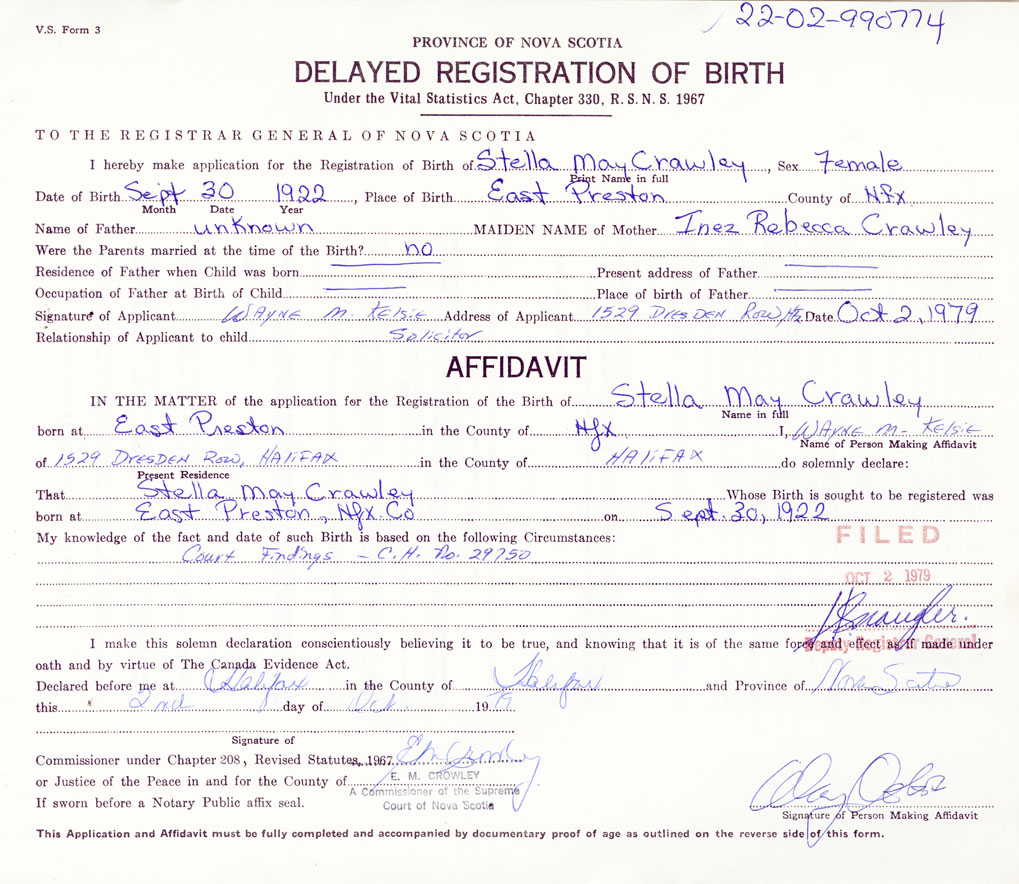 22-02-990774
V.S. Form 3
PROVINCE OF NOVA SCOTIA
DELAYED REGISTRATION OF BIRTH
Under the Vital Statistics Act, Chapter 330, R.S.N.S. 1967
TO THE REGISTRAR GENERAL OF NOVA SCOTIA
I hereby make application for the Registration of Birth of Stella May Crawley, Sex Female
Print Name in full
Date of Birth Sept 30 1922, Place of Birth East Preston County of Hfx
Month Date Year
Name of Father unknown MAIDEN NAME of Mother Inez Rebecca Crawley
Were the Parents married at the time of the Birth? no
Residence of Father when Child was born Present address of Father
Occupation of Father at Birth of Child Place of birth of Father
Signature of Applicant WAYNE M. KELSIE Address of Applicant 1529 DRESDEN ROW, Hfx Date Oct 2, 1979
Relationship of Applicant to child Solicitor
AFFIDAVIT
IN THE MATTER of the application for the Registration of the Birth of Stella May Crawley
Name in full
born at East Preston in the County of Hfx I, WAYNE M. KELSIE
Name of Person Making Affidavit
of 1529 DRESDEN ROW, HALIFAX in the County of HALIFAX do solemnly declare:
Present Residence
That Stella May Crawley Whose Birth is sought to be registered was
born at East Preston, Hfx. Co on Sept. 30, 1922
My knowledge of the fact and date of such Birth is based on the following Circumstances:
Court Findings - C.H. No. 29750
FILED
OCT 2 1979
Deputy Registrar General
I make this solemn declaration conscientiously believing it to be true, and knowing that it is of the same force and effect as if made under
oath and by virtue of The Canada Evidence Act.
Declared before me at Halifax in the County of Halifax and Province of Nova Scotia
this 2nd day of Oct. 1979
Signature of
Commissioner under Chapter 208, Revised Statutes, 1967 EM Crowley
or Justice of the Peace in and for the County of E. M. CROWLEY
A Commissioner of the Supreme
If sworn before a Notary Public affix seal. Court of Nova Scotia
Signature of Person Making Affidavit
This Application and Affidavit must be fully completed and accompanied by documentary proof of age as outlined on the reverse side of this form.